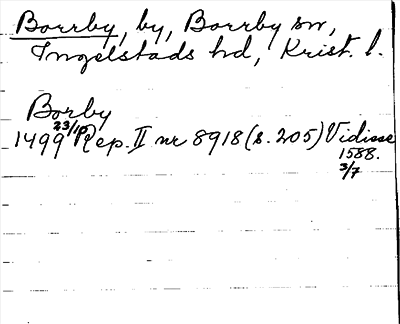 Borrby, by, Borrby sn,
Ingelstads hd, Krist. l.
Borby
1499 23/10 Rep. II nr 8918 (s. 205) Vidisse
1588.
3/7